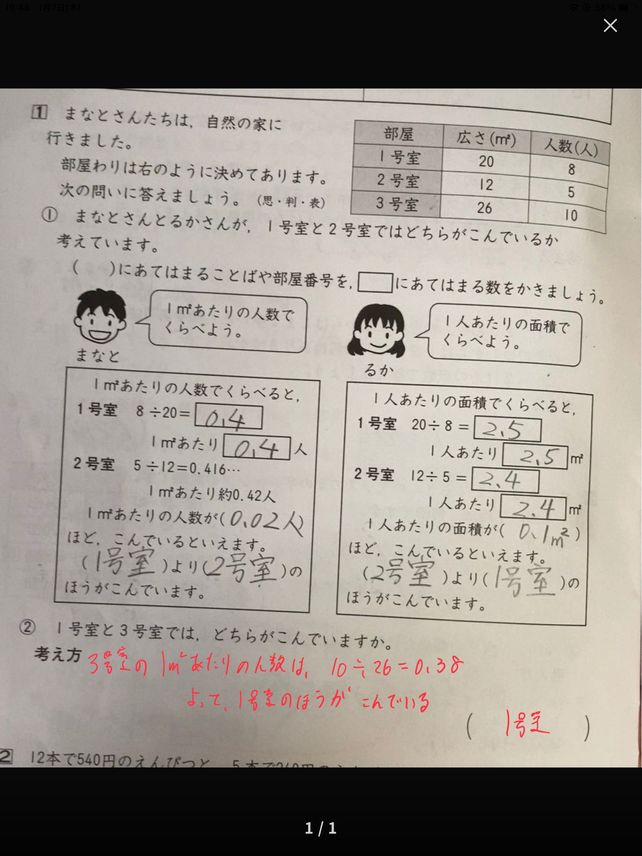 1 まなとさんたちは，自然の家に
行きました。
部屋わりは右のように決めてあります。
次の問いに答えましょう。（思・判・表）
部屋 広さ(㎡) 人数(人)
1号室 20 8
2号室 12 5
3号室 26 10
① まなとさんとるかさんが，1号室と2号室ではどちらがこんでいるか
考えています。
(　)にあてはまることばや部屋番号を，□にあてはまる数をかきましょう。
1㎡あたりの人数で
くらべよう。
まなと
1人あたりの面積で
くらべよう。
るか
1㎡あたりの人数でくらべると，
1号室 8÷20=0.4
1㎡あたり 0.4 人
2号室 5÷12=0.416…
1㎡あたり約0.42人
1㎡あたりの人数が(0.02人)
ほど，こんでいるといえます。
(1号室)より(2号室)の
ほうがこんでいます。
1人あたりの面積でくらべると，
1号室 20÷8=2.5
1人あたり 2.5 ㎡
2号室 12÷5=2.4
1人あたり 2.4 ㎡
1人あたりの面積が(0.1㎡)
ほど，こんでいるといえます。
(2号室)より(1号室)の
ほうがこんでいます。
② 1号室と3号室では，どちらがこんでいますか。
考え方 3号室の1㎡あたりの人数は，10÷26=0.38
よって，1号室のほうがこんでいる
(1号室)
2 12本で540円のえんぴつと，5本で
1 / 1